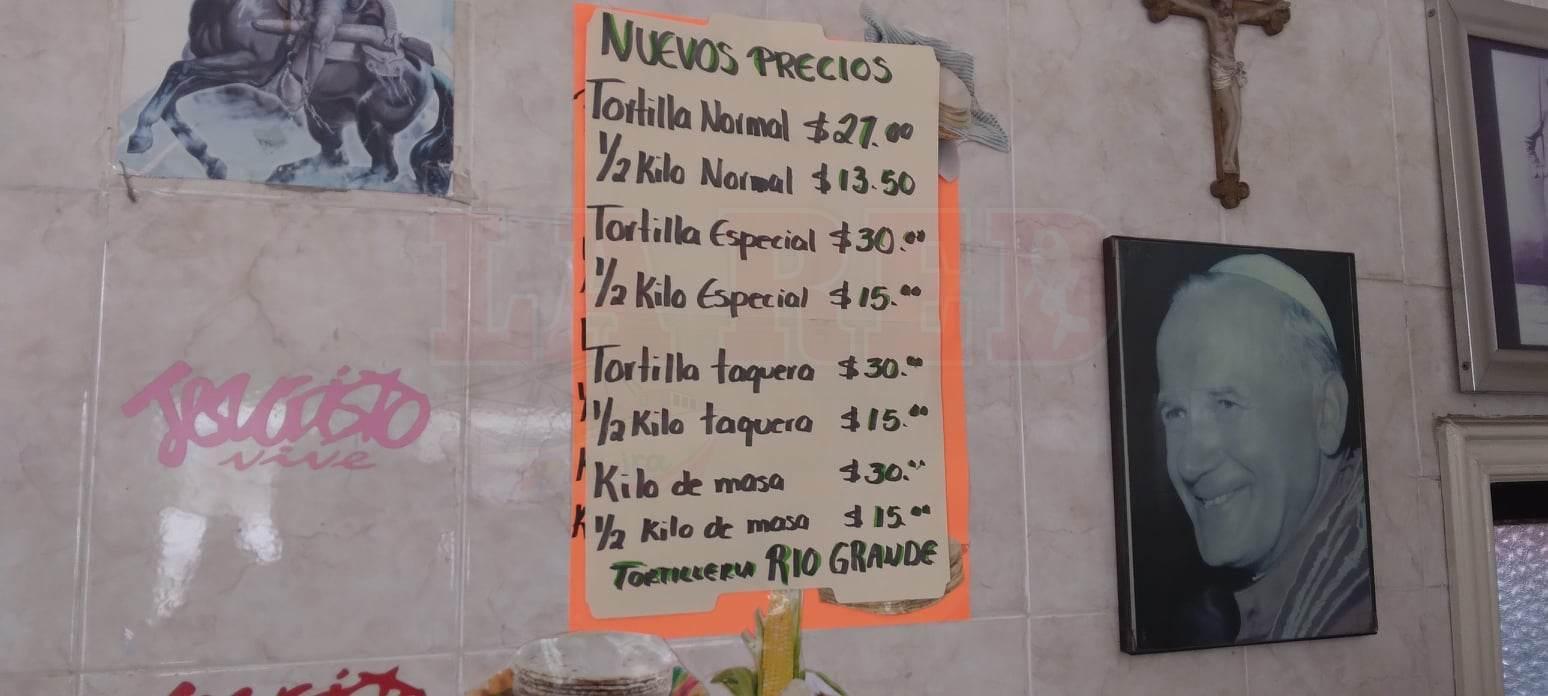 NUEVOS PRECIOS
Tortilla Normal $27.00
1/2 Kilo Normal $13.50
Tortilla Especial $30.00
1/2 Kilo Especial $15.00
Tortilla taquera $30.00
1/2 Kilo taquera $15.00
Kilo de masa $30.00
1/2 Kilo de masa $15.00
TORTILLERIA RIO GRANDE
Jesucristo
vive
LA RED